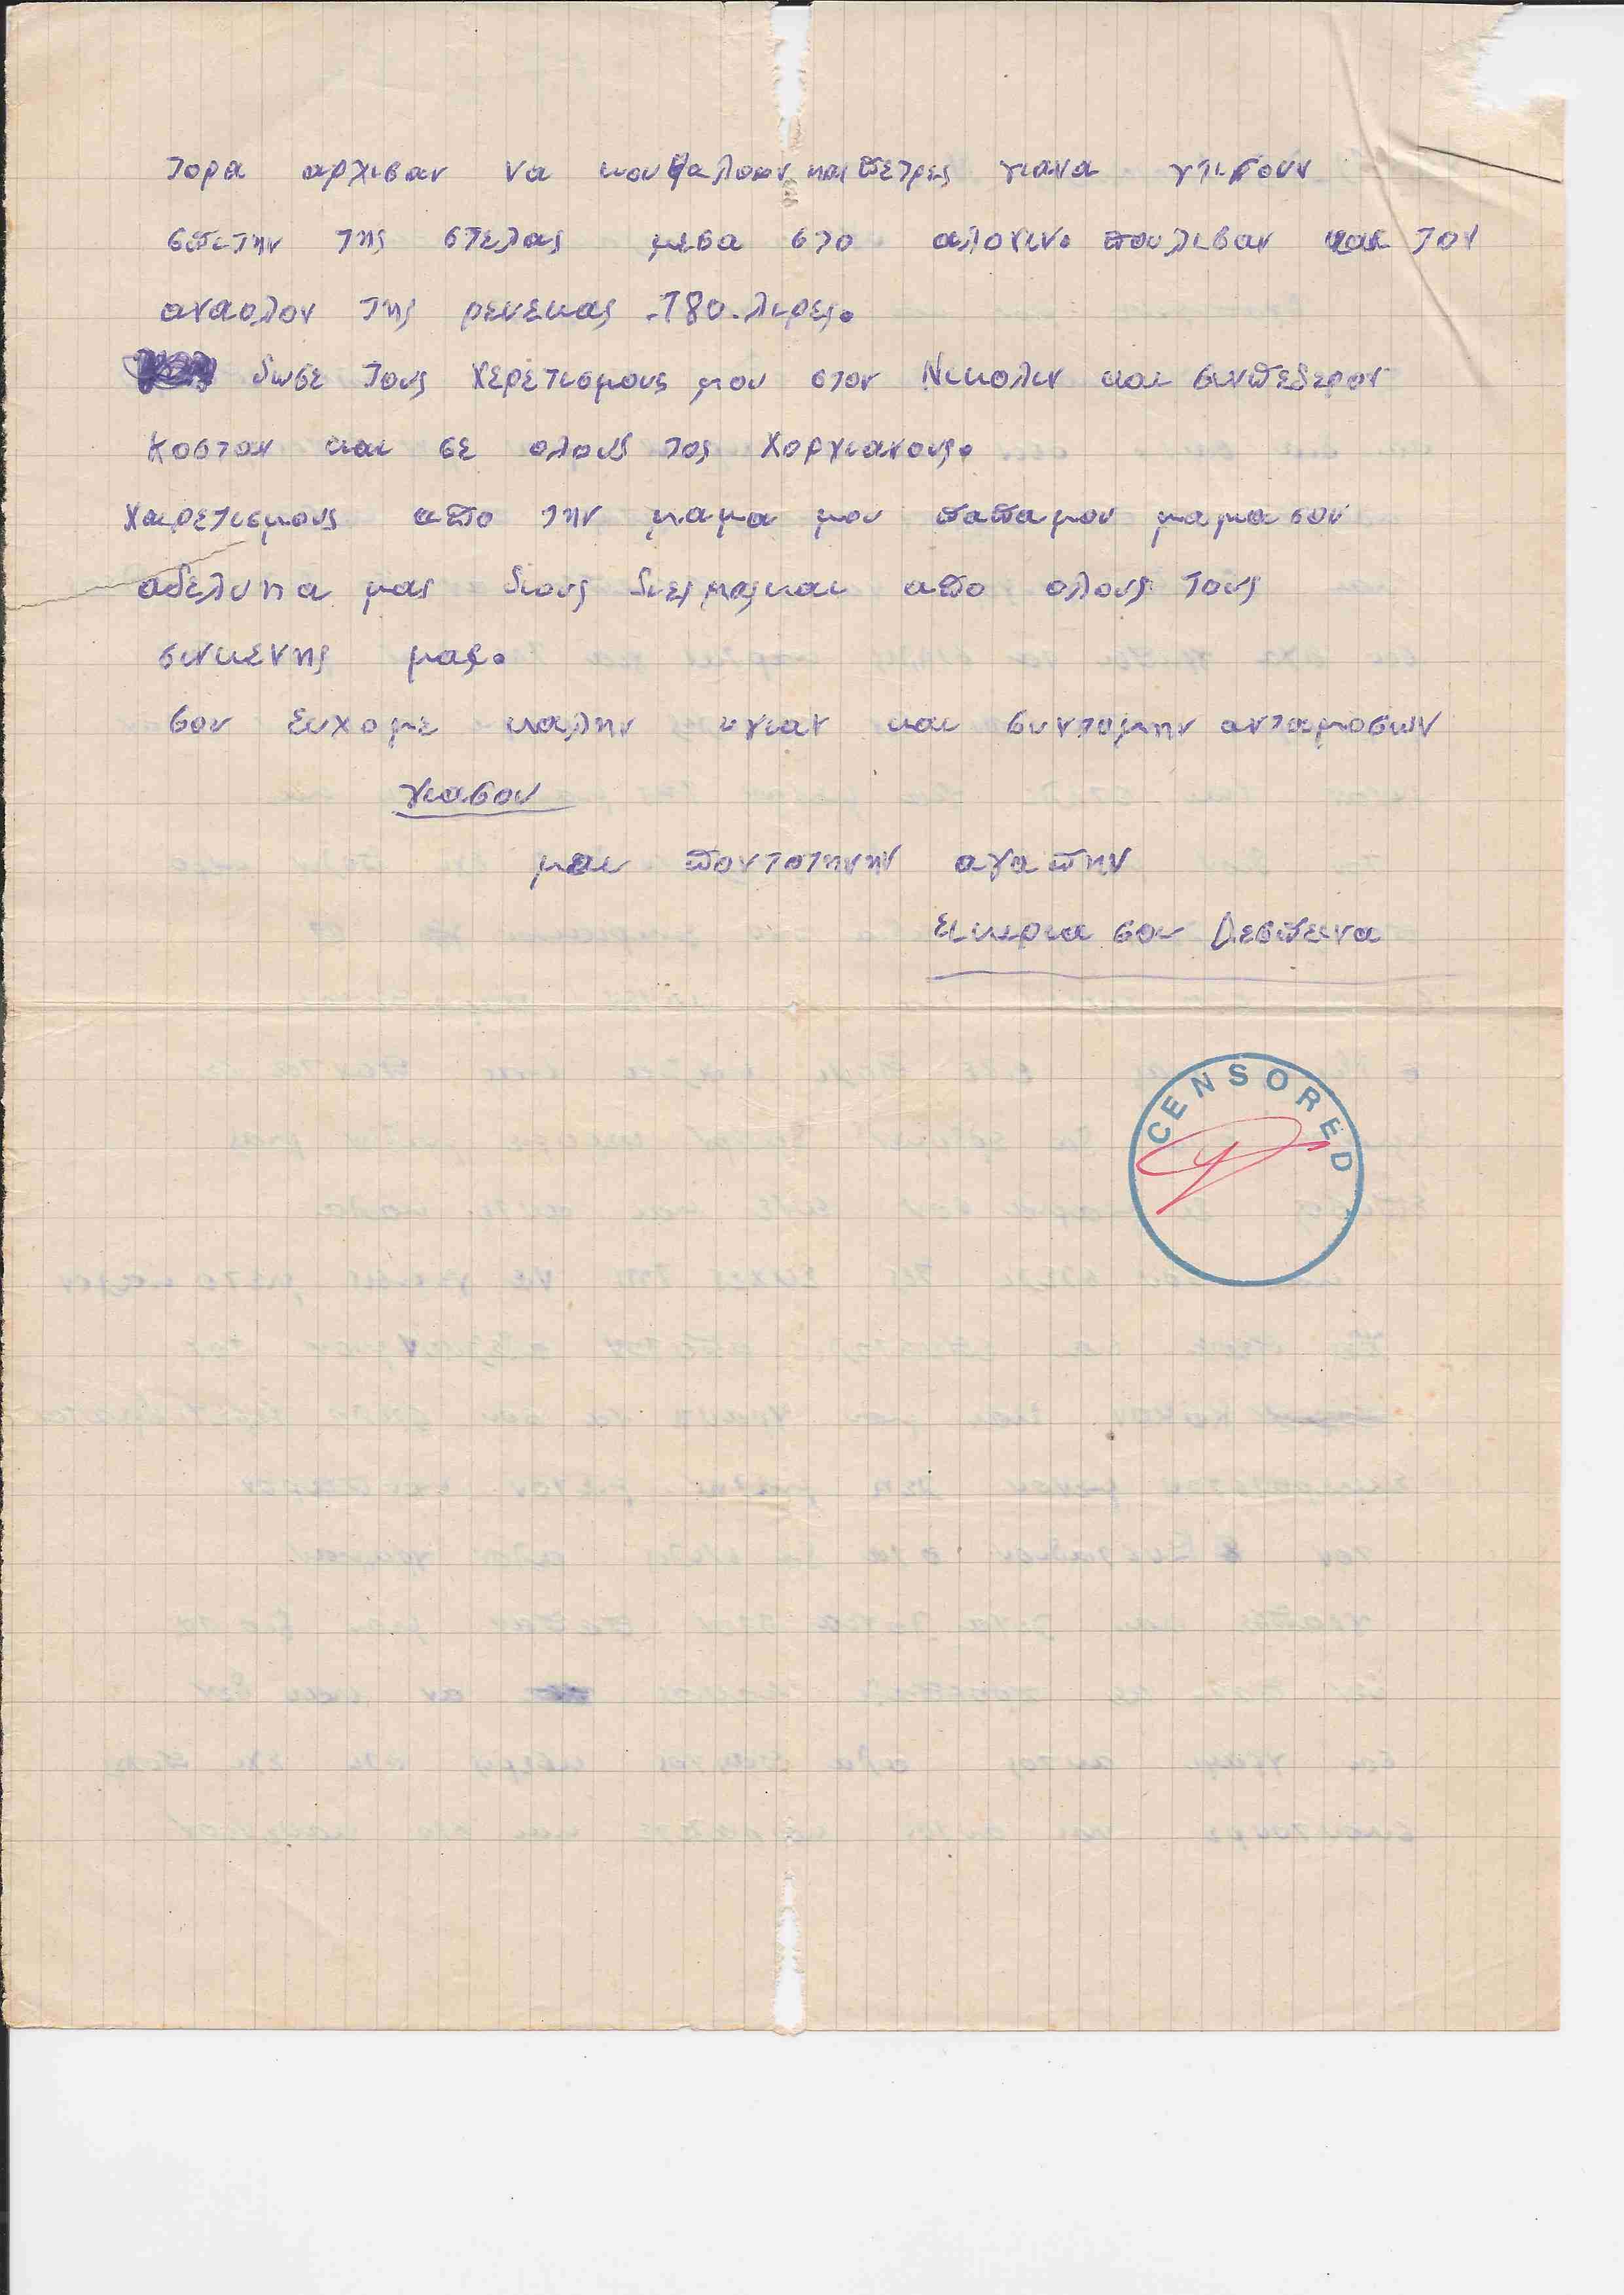 τορα αρχισαν να κουβαλουν και πετρες γιανα γτισουν
σπιτην της στελας μεσα στο αλονιν. πουλισαν και τον
αναολον της ρεvεκας .180. λιρες.
δωσε τους χερετισμους μου στον Νικολιν και σινπεθερον
Κοσταν και σε ολους τος χοργιανους.
χαιρετισμους απο την μαμα μου παπαμου μαμα σου
αδελφηα μας διους διες μας και απο ολους τους
σινκενης μας.
σου ευχομε καλην υγιαν και συντομην ανταμοσιν
γιασου
μαι παντοτηνην αγαπην
ει κυρια σου Δεσπεινα
CENSORED